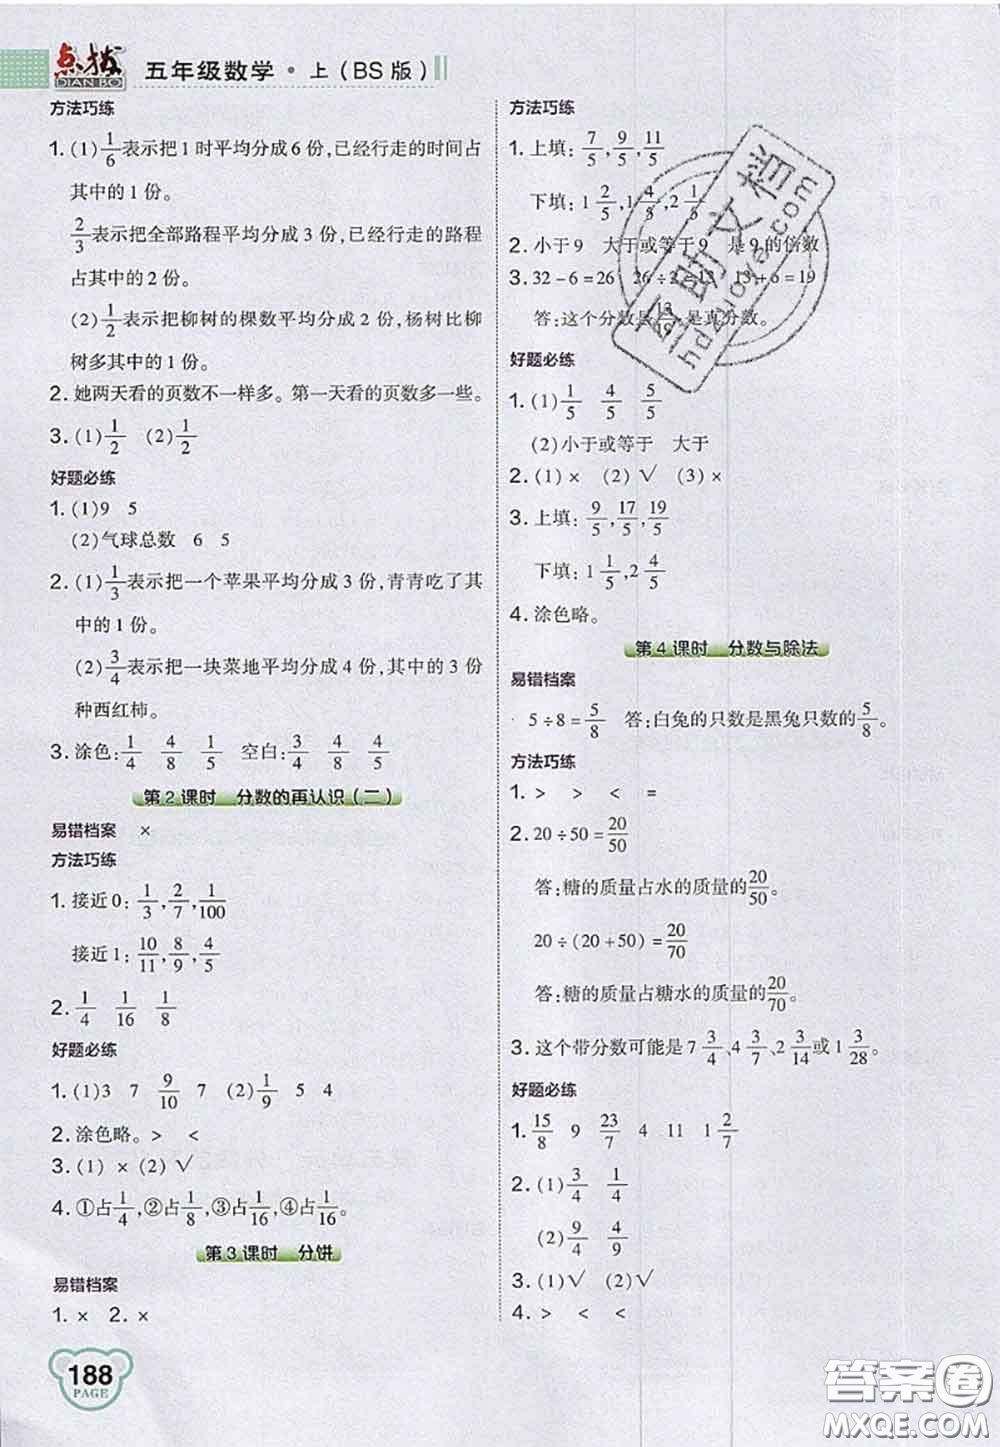 点拨 DIAN BO 五年级数学·上(BS版)
方法巧练
1. (1) 1/6 表示把1时平均分成6份,已经行走的时间占
其中的1份。
2/3 表示把全部路程平均分成3份,已经行走的路程
占其中的2份。
(2) 1/2 表示把柳树的棵数平均分成2份,杨树比柳
树多其中的1份。
2. 她两天看的页数不一样多。第一天看的页数多一些。
3. (1) 1/2 (2) 1/2
好题必练
1. (1)9 5
(2)气球总数 6 5
2. (1) 1/3 表示把一个苹果平均分成3份,青青吃了其
中的1份。
(2) 3/4 表示把一块菜地平均分成4份,其中的3份
种西红柿。
3. 涂色: 1/4 4/8 1/5 空白: 3/4 4/8 4/5
第2课时 分数的再认识(二)
易错档案 ×
方法巧练
1. 接近0: 1/3, 2/7, 1/100
接近1: 10/11, 8/9, 4/5
2. 1/4 1/16 1/8
好题必练
1. (1)3 7 9/10 7 (2) 1/9 5 4
2. 涂色略。 > <
3. (1) × (2) √
4. ①占 1/4, ②占 1/8, ③占 1/16, ④占 1/16。
第3课时 分饼
易错档案
1. × 2. ×
188
PAGE
方法巧练
1. 上填: 7/5, 9/5, 11/5
下填: 1 2/5, 1 4/5, 2 1/5
2. 小于9 大于或等于9 是9的倍数
3. 32-6=26 26÷2=13 13+6=19
答:这个分数是 13/19, 是真分数。
好题必练
1. (1) 1/5 4/5 5/5
(2)小于或等于 大于
2. (1) × (2) √ (3) ×
3. 上填: 9/5, 17/5, 19/5
下填: 1 1/5, 2 4/5
4. 涂色略。
第4课时 分数与除法
易错档案
5÷8= 5/8 答:白兔的只数是黑兔只数的 5/8。
方法巧练
1. > > < =
2. 20÷50= 20/50
答:糖的质量占水的质量的 20/50。
20÷(20+50)= 20/70
答:糖的质量占糖水的质量的 20/70。
3. 这个带分数可能是 7 3/4、4 3/7、2 3/14 或 1 3/28。
好题必练
1. 15/8 9 23/7 4 11 1 2/7
2. (1) 3/4 1/4
(2) 9/4 4/9
3. (1)√ (2)√
4. > < <
百助文档
hdzuoye.com
答案圈
MXQE.COM